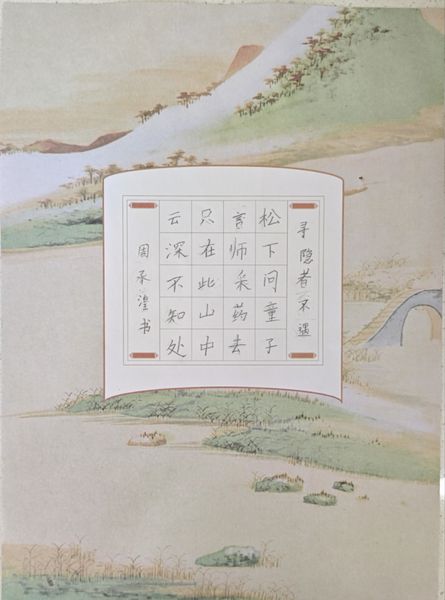 寻隐者不遇
松下问童子
言师采药去
只在此山中
云深不知处
周承湟书